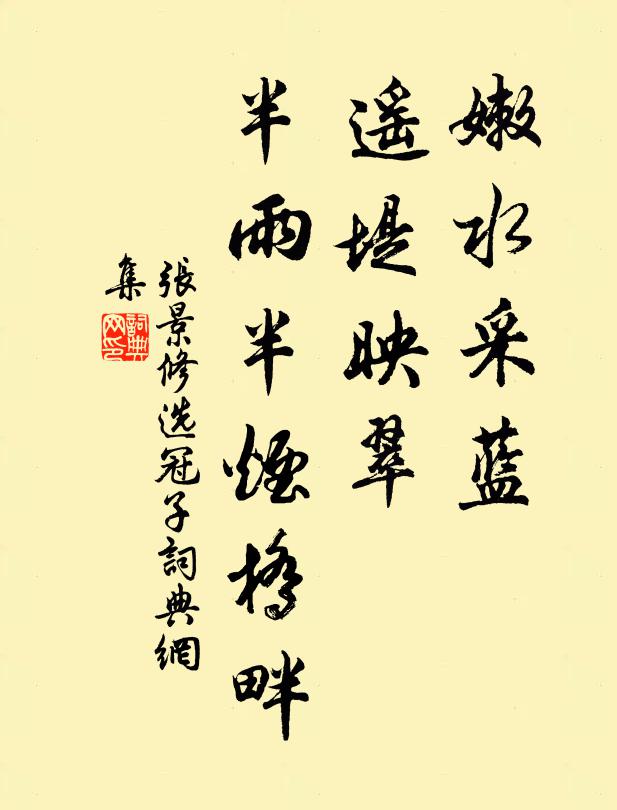 嫩水采蓝
遥堤映翠
半雨半烟橋畔
張景修选冠子詞典網
集
詞典网印